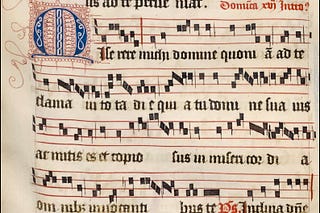 us ad te perue niat. Domica xvj Intro?
Mi se rere michi domine quoni ā ad te
clama ui to ta di e qui a tu domi ne sua uis
ac mitis es et copio sus in miseri cor di a
om nibus inuocanti bus te Ps. Inclina dñe